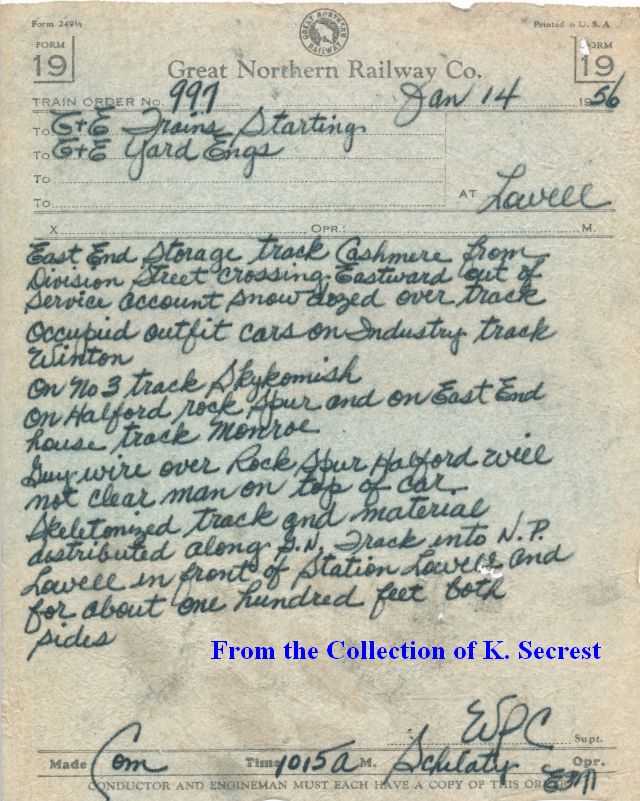 Form 249½
Printed in U. S. A
GREAT NORTHERN RAILWAY
FORM 19
FORM 19
Great Northern Railway Co.
TRAIN ORDER No. 997 Jan 14 1956
To C+E Trains Starting
To C+E Yard Engs
To
To
AT Lowell
X OPR.: M.
East End Storage track Cashmere from
Division Street crossing Eastward out of
service account snow dozed over track
Occupied outfit cars on Industry track
Winton
On No 3 track Skykomish
On Halford rock spur and on East End
house track Monroe
Guy wire over Rock Spur Halford will
not clear man on top of car.
Skeletonized track and material
distributed along G.N. Track into N.P.
Lowell in front of Station Lowell and
for about one hundred feet both
sides
From the Collection of K. Secrest
Supt.
Made Com Time 1015 A M. Schlaty Opr.
CONDUCTOR AND ENGINEMAN MUST EACH HAVE A COPY OF THIS ORDER